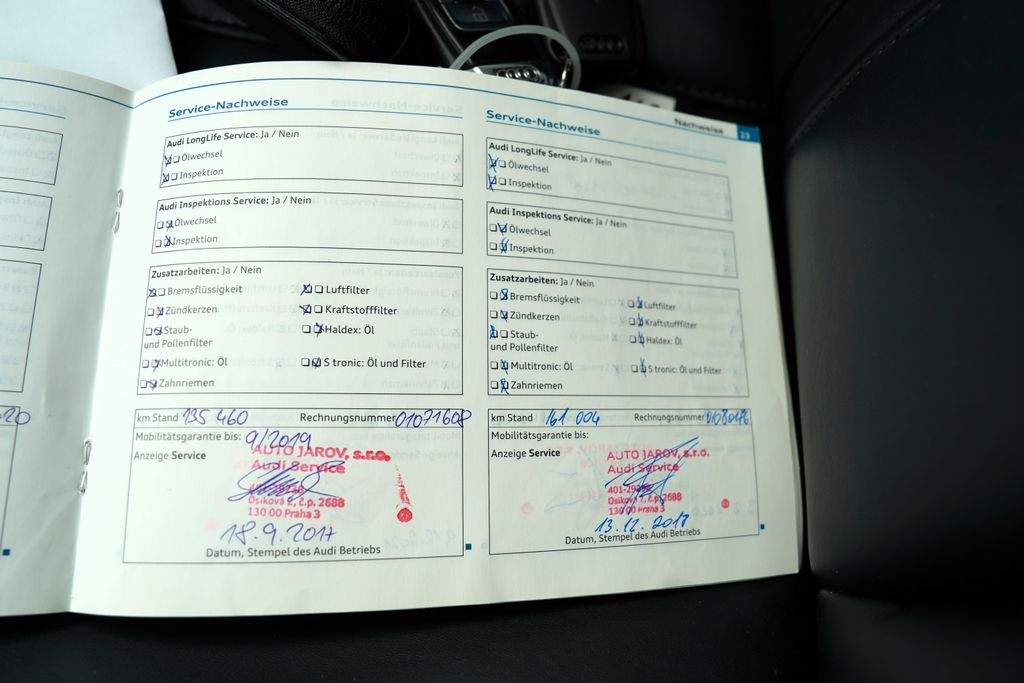 20
Service-Nachweise
Audi LongLife Service: Ja / Nein
Ölwechsel
Inspektion
Audi Inspektions Service: Ja / Nein
Ölwechsel
Inspektion
Zusatzarbeiten: Ja / Nein
Bremsflüssigkeit Luftfilter
Zündkerzen Kraftstofffilter
Staub- Haldex: Öl
und Pollenfilter
Multitronic: Öl S tronic: Öl und Filter
Zahnriemen
km Stand 135 460 Rechnungsnummer 01071608
Mobilitätsgarantie bis: 9/2019
Anzeige Service
AUTO JAROV, s.r.o.
Audi Service
Osiková 2, č.p. 2688
130 00 Praha 3
18.9.2017
Datum, Stempel des Audi Betriebs
Nachweise 23
Service-Nachweise
Audi LongLife Service: Ja / Nein
Ölwechsel
Inspektion
Audi Inspektions Service: Ja / Nein
Ölwechsel
Inspektion
Zusatzarbeiten: Ja / Nein
Bremsflüssigkeit Luftfilter
Zündkerzen Kraftstofffilter
Staub- Haldex: Öl
und Pollenfilter
Multitronic: Öl S tronic: Öl und Filter
Zahnriemen
km Stand 161 004 Rechnungsnummer
Mobilitätsgarantie bis:
Anzeige Service
AUTO JAROV, s.r.o.
Audi Service
Osiková 2, č.p. 2688
130 00 Praha 3
13.12.2018
Datum, Stempel des Audi Betriebs